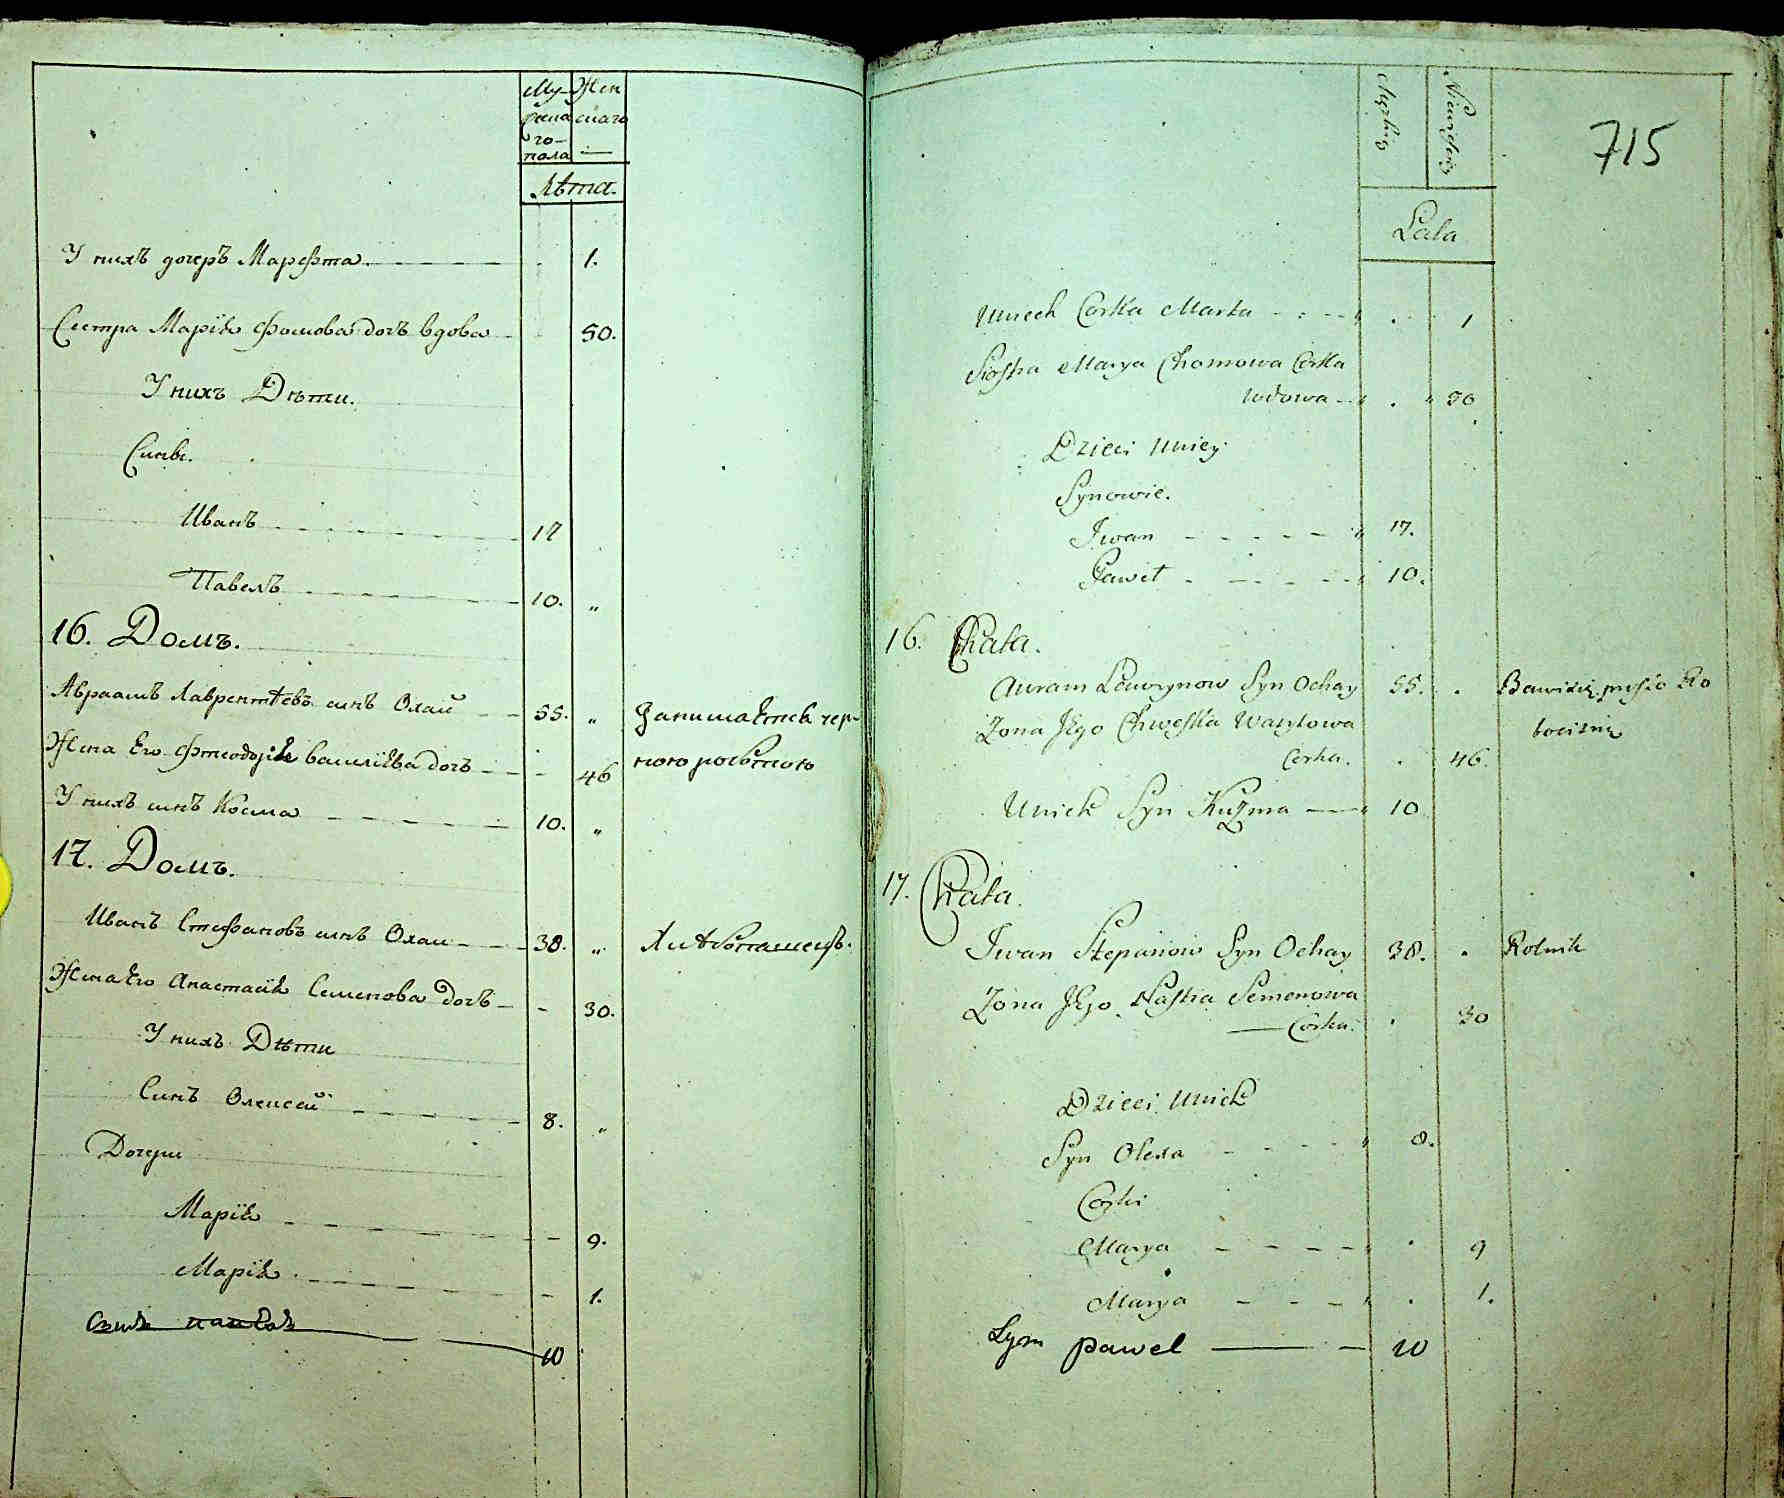 Му-
жеска
го
пола
Жен
скаго
Лѣта.
У нихъ дочеръ Марфта 1.
Сестра Марія Фомова дочъ вдова 50.
У нихъ Дѣти.
Сыны.
Иванъ 17
Павелъ 10. „
16. Домъ.
Авраамъ Лаврентѣевъ сынъ Охай 55. „ Занимается чер-
Жена Его Фтеодосія Василіева дочъ 46 ною роботою
У нихъ сынъ Косма 10. „
17. Домъ.
Иванъ Стефановъ сынъ Охай 38. „ Хлѣбопашецъ.
Жена Его Анастасія Семенова дочъ 30.
У нихъ Дѣти
Синъ Олексей 8. „
Дочери
Марія 9.
Марія 1.
10
715
Lata
Unich Corka Marta 1
Siostra Marya Chomowa Corka
wdowa 50
Dzieci Uniey
Synowie.
Iwan 17.
Paweł 10.
16. Chata.
Auram Ławrynow Syn Ochay 55.
Żona Jego Chweska Wasylowa
Corka. 46.
Unich Syn Kuzma 10
17. Chata.
Iwan Stepanow Syn Ochay 38. Rolnik
Żona Jego Nastia Semenowa
Corka. 30
Dzieci Unich
Syn Olexa 8.
Corki
Marya 9
Marya 1.
Syn pawel 10